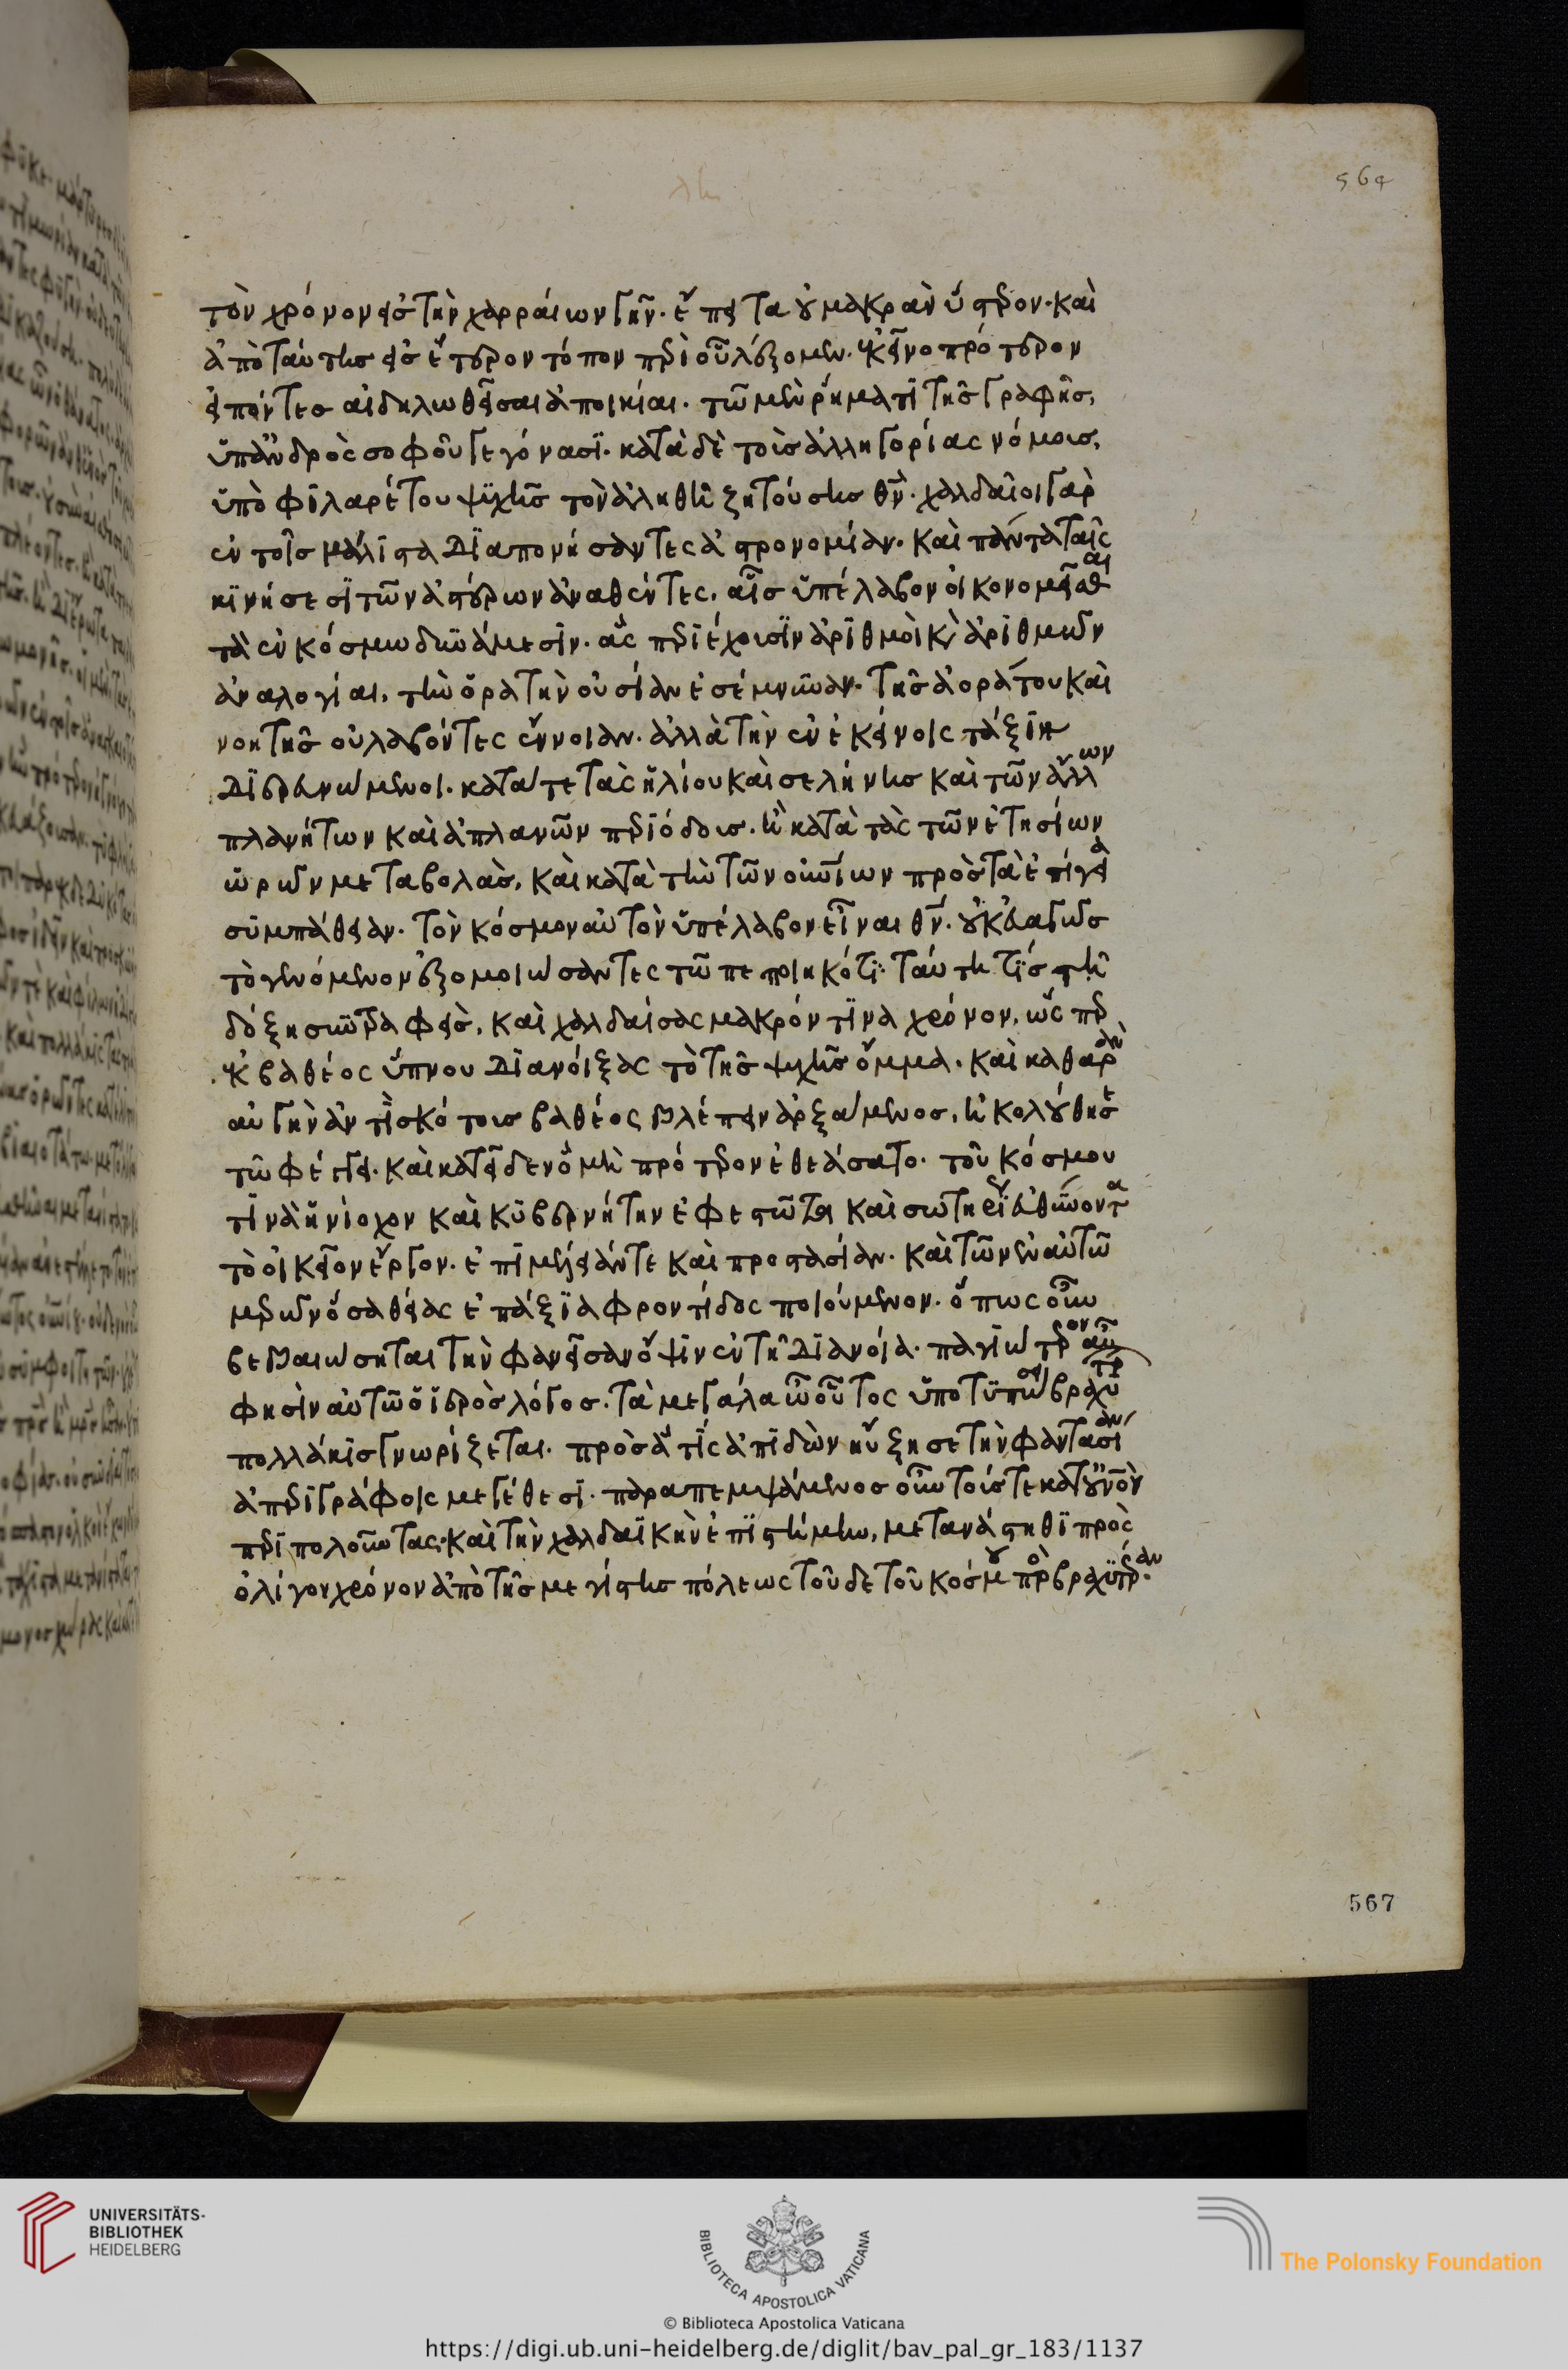 τὸν χρόνον εἰς τὴν χαρραίων γῆν. ἔπειτα οὐ μακρὰν ὕστερον. καὶ
ἀπὸ ταύτης εἰς ἕτερον τόπον περὶ οὗ λέξομεν. ἐκεῖνο πρότερον
εἰπόντες αἱ δηλωθεῖσαι ἀποικίαι. τῶ μὲν ῥήματι τῆς γραφῆς,
ὑπ' ἀνδρὸς σοφοῦ γεγόνασϊ. κατὰ δὲ τοὺς ἀλληγορίας νόμους,
ὑπὸ φιλαρέτου ψυχῆς τὸν ἀληθῆ ζητούσης θν. χαλδαῖοι γὰρ
ἐν τοῖς μάλιστα διαπονήσαντες ἀστρονομίαν. καὶ πάντα ταῖς
κινήσεσϊ τῶν ἀστέρων ἀναθέντες, αἷς ὑπέλαβον οἰκονομεῖσθαι
τὰ ἐν κόσμω δυνάμεσϊν. ἃς περιέχουσϊν ἀριθμοὶ κ ἀριθμῶν
ἀναλογίαι, τὴν ὁρατὴν οὐσίαν ἐσέμνυναν. τῆς ἀοράτου καὶ
νοητῆς οὐ λαβόντες ἔννοιαν. ἀλλὰ τὴν ἐν ἐκείνοις τάξϊν
διερευνώμενοι. κατά τε τὰς ἡλίου καὶ σελήνης καὶ τῶν ἄλλων
πλανήτων καὶ ἀπλανῶν περιόδους. ἢ κατὰ τὰς τῶν ἐτησίων
ὡρῶν μεταβολὰς, καὶ κατὰ τὴν τῶν οὐνίων πρὸς τὰ ἐπίγεια
συμπάθειαν. τὸν κόσμον αὐτὸν ὑπέλαβον εἶναι θν. οὐκ εὐαγῶς
τὸ γενόμενον ἐξομοιώσαντες τῶ πεποιηκότϊ. ταύτη τϊς τῆ
δόξη συντραφεὶς, καὶ χαλδαΐσας μακρόν τϊνα χρόνον, ὥσπερ
ἐκ βαθέος ὕπνου διανοίξας τὸ τῆς ψυχῆς ὄμμα. καὶ καθαρὰν
αὐγὴν ἀντὶ σκότους βαθέος βλέπειν ἀρξάμενος, ἠκολούθησε
τῶ φέγγει. καὶ κατεῖδεν ὃ μὴ πρότερον ἐθεάσατο. τοῦ κόσμου
τινὰ ἡνίοχον καὶ κυβερνήτην ἐφεστῶτα καὶ σωτηρΐ εὐθύνοντα
τὸ οἰκεῖον ἔργον. ἐπιμέλειάν τε καὶ προστασίαν. καὶ τῶν ἐν αὐτῶ
μερῶν ὅσα θείας ἐπάξϊα φροντίδος ποιούμενον. ὅπως οὖν
βεβαιώσηται τὴν φανεῖσαν ὄψϊν ἐν τῆ διανοία. παγιώτερον αὖ
φησὶν αὐτῶ ὁ ἱερὸς λόγος. τὰ μεγάλα ὦ οὗτος ὑποτυπώσει βραχυτέρ
πολλάκις γνωρίζεται. πρὸς ἅ τϊς ἀπιδὼν ηὔξησε τὴν φαντασίαν
ἀπεριγράφοις μεγέθεσϊ. παραπεμψάμενος οὖν τούς τε κατ' οὐνὸν
περιπολοῦντας. καὶ τὴν χαλδαϊκὴν ἐπιστήμην, μετανάστηθι πρὸς
ὀλίγον χρόνον ἀπὸ τῆς μεγίστης πόλεως τοῦδε τοῦ κόσμου πρὸς βραχυτέραν.
564
567
UNIVERSITÄTS-
BIBLIOTHEK
HEIDELBERG
BIBLIOTECA APOSTOLICA VATICANA
The Polonsky Foundation
© Biblioteca Apostolica Vaticana
https://digi.ub.uni-heidelberg.de/diglit/bav_pal_gr_183/1137